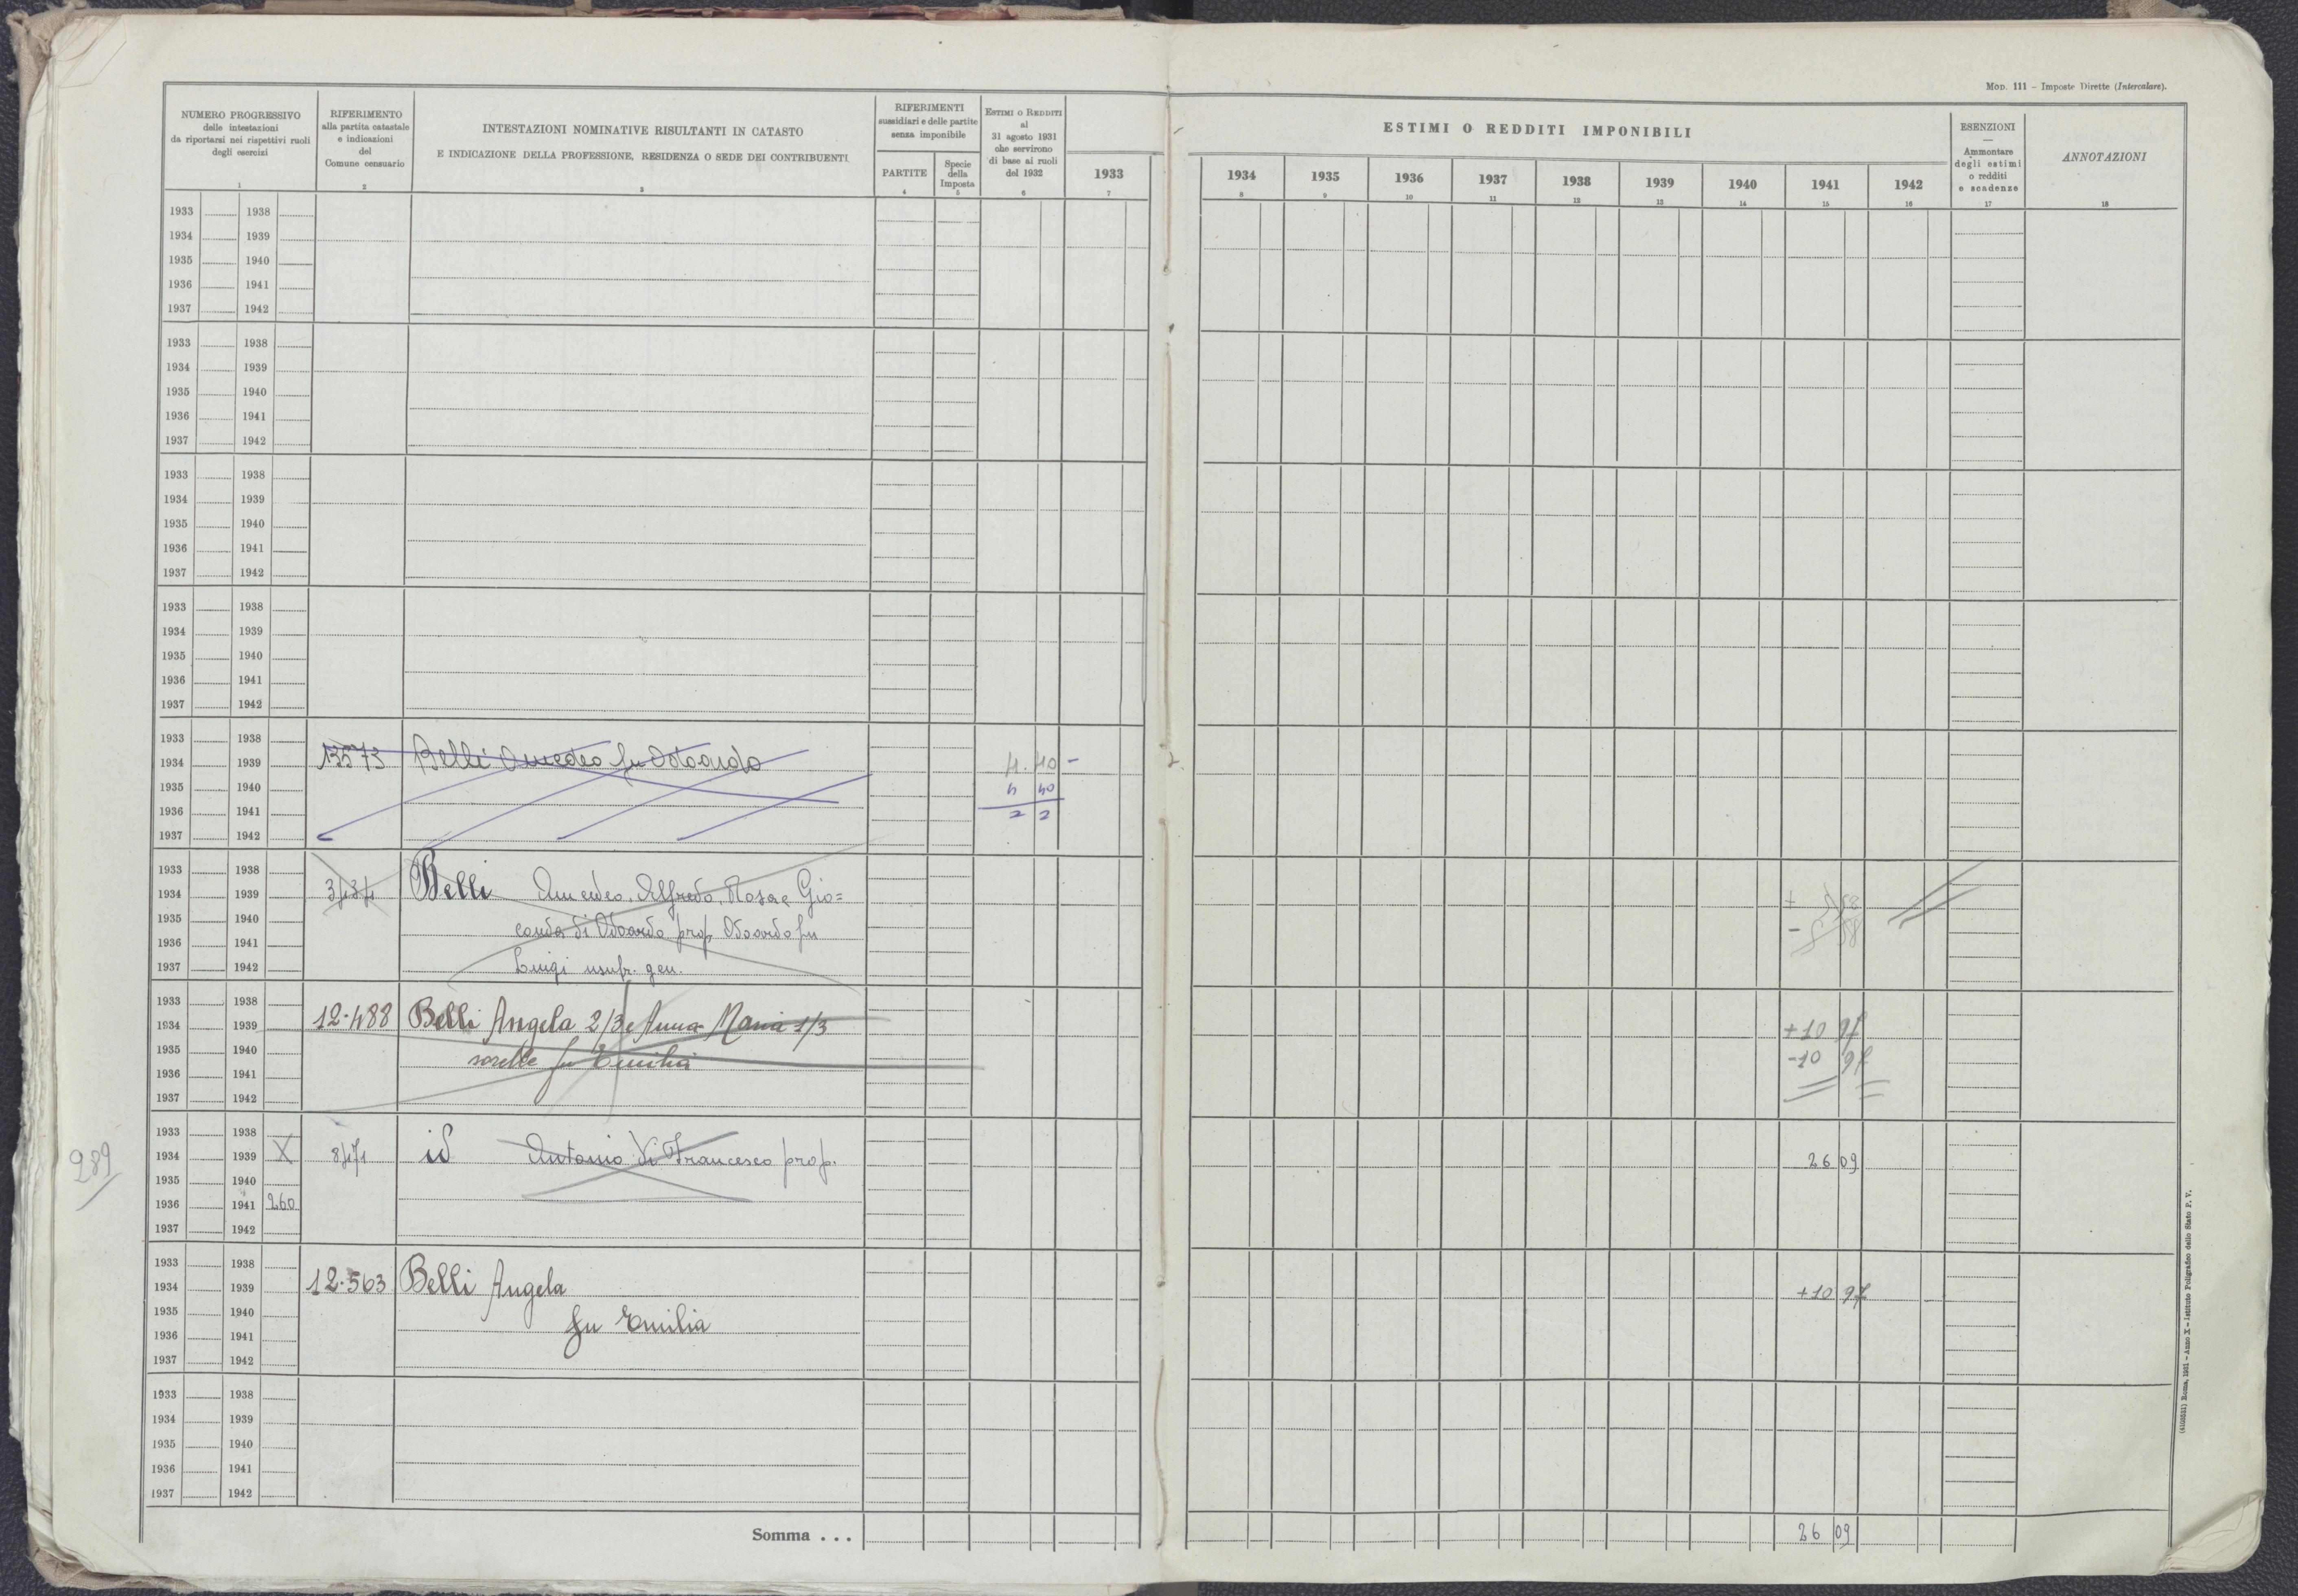 MOD. 111 - Imposte Dirette (Intercalare).
NUMERO PROGRESSIVO
delle intestazioni
da riportarsi nei rispettivi ruoli
degli esercizi
1
RIFERIMENTO
alla partita catastale
e indicazioni
del
Comune censuario
2
INTESTAZIONI NOMINATIVE RISULTANTI IN CATASTO
E INDICAZIONE DELLA PROFESSIONE, RESIDENZA O SEDE DEI CONTRIBUENTI
3
RIFERIMENTI
sussidiari e delle partite
senza imponibile
PARTITE
4
Specie
della
Imposta
5
ESTIMI O REDDITI
al
31 agosto 1931
che servirono
di base ai ruoli
del 1932
6
1933
7
ESTIMI O REDDITI IMPONIBILI
1934 1935 1936 1937 1938 1939 1940 1941 1942
8 9 10 11 12 13 14 15 16
ESENZIONI
—
Ammontare
degli estimi
o redditi
e scadenze
17
ANNOTAZIONI
18
1933 1938
1934 1939
1935 1940
1936 1941
1937 1942
1933 1938
1934 1939
1935 1940
1936 1941
1937 1942
1933 1938
1934 1939
1935 1940
1936 1941
1937 1942
1933 1938
1934 1939
1935 1940
1936 1941
1937 1942
1933 1938
1934 1939 13573 Belli Amedeo fu Odoardo 4. 40 -
1935 1940 4 40
1936 1941 2 2
1937 1942
1933 1938
1934 1939 Belli Amedeo, Alfredo, Rosa e Gio=
1935 1940 conda di Odoardo prop, Odoardo fu
1936 1941
1937 1942 Luigi usufr. gen.
1933 1938
1934 1939 12.488 Belli Angela 2/3 e Anna Maria 1/3 +10 97
1935 1940 sorelle fu Emilia -10 97
1936 1941
1937 1942
1933 1938
289 1934 1939 X 8471 id Antonio di Francesco prop. 26 09
1935 1940
1936 1941 260
1937 1942
1933 1938
1934 1939 12.563 Belli Angela +10 97
1935 1940 fu Emilia
1936 1941
1937 1942
1933 1938
1934 1939
1935 1940
1936 1941
1937 1942
Somma . . . 26 09
Roma, 1931 - Anno X - Istituto Poligrafico dello Stato P. V.